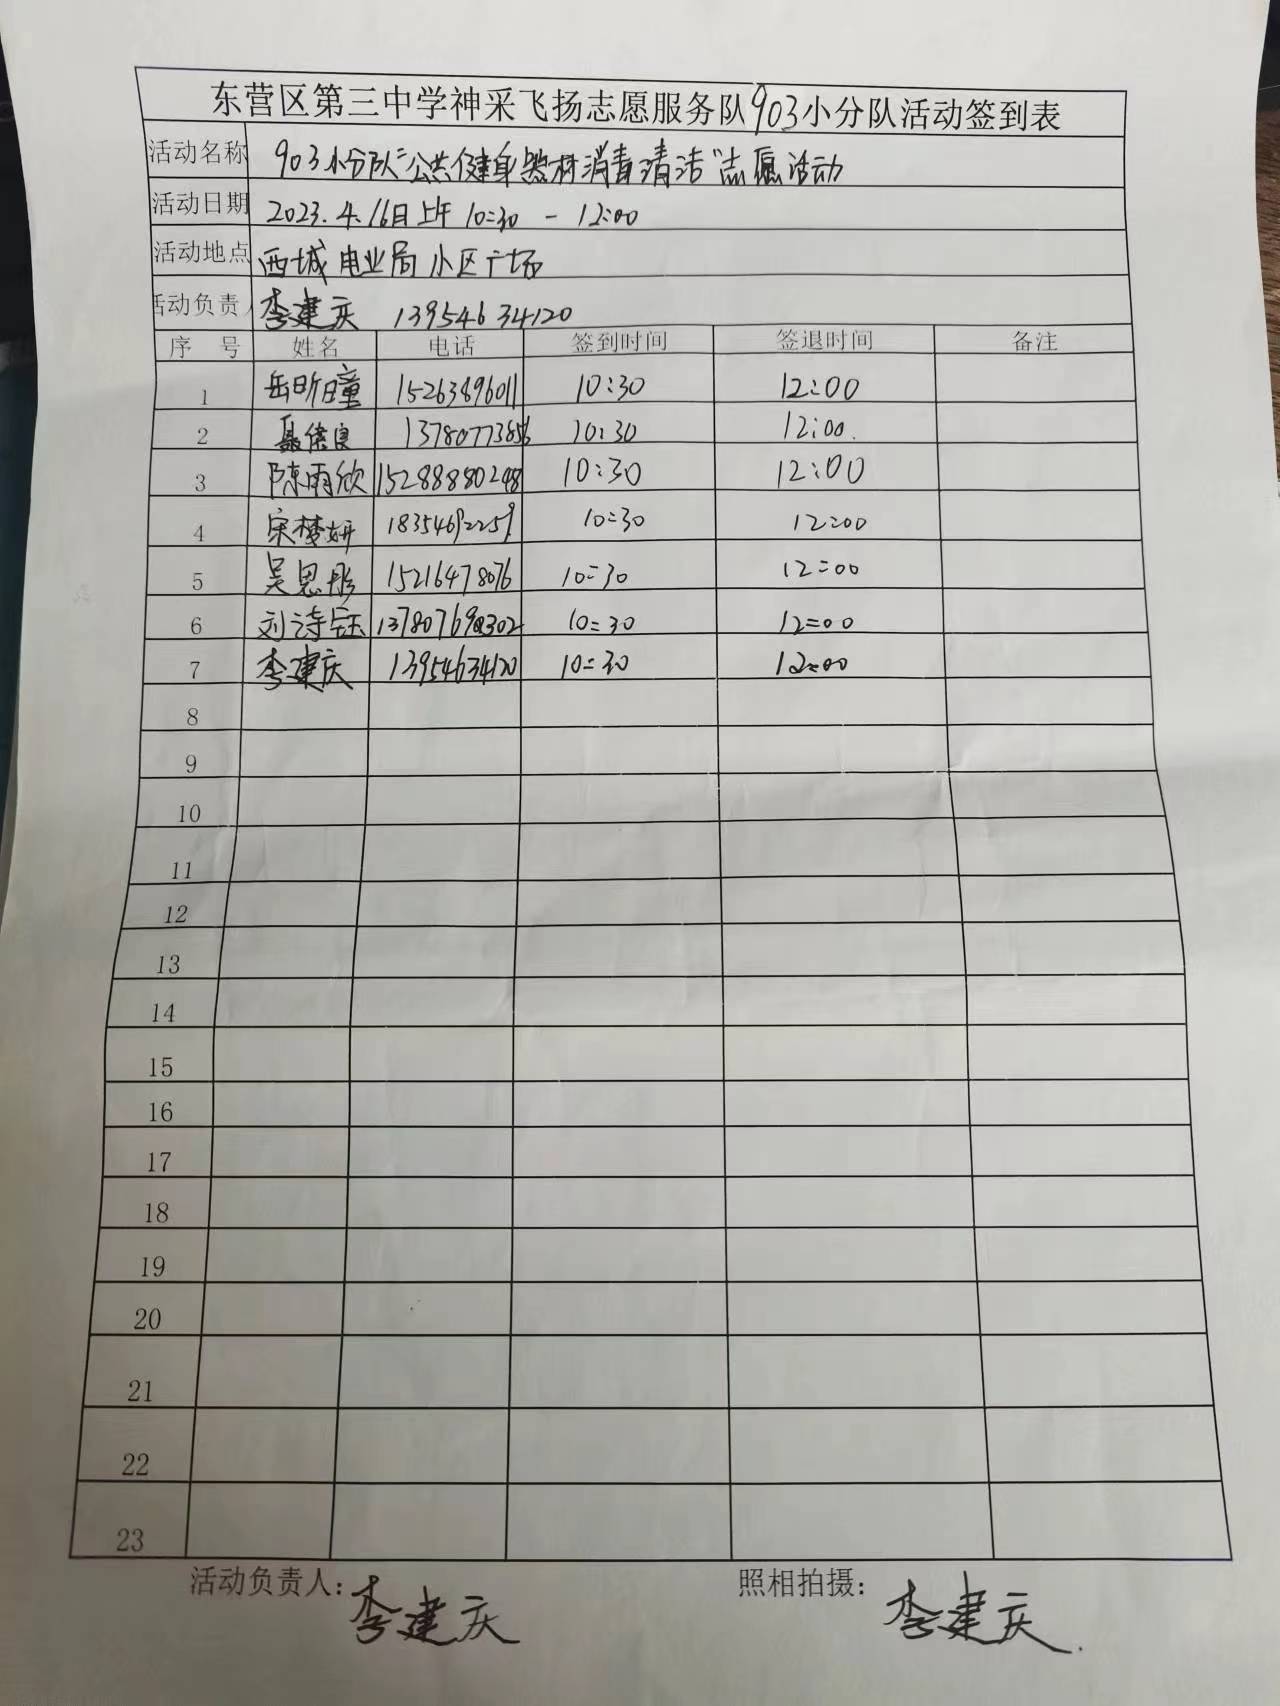 东营区第三中学神采飞扬志愿服务队903小分队活动签到表
活动名称 903小分队"公共健身器材消毒清洁"志愿活动
活动日期 2023.4.16日上午10:30 - 12:00
活动地点 西城电业局小区广场
活动负责人 李建庆 13954634120
序 号 姓名 电话 签到时间 签退时间 备注
1 岳昕瞳 15263896011 10:30 12:00
2 聂信良 13780773856 10:30 12:00.
3 陈雨欣 15288880248 10:30 12:00
4 宋梦妍 18354692259 10:30 12:00
5 吴思彤 15216478076 10:30 12:00
6 刘诗钰 10:30 12:00
7 李建庆 13954634120 10:30 12:00
8
9
10
11
12
13
14
15
16
17
18
19
20
21
22
23
活动负责人：李建庆 照相拍摄：李建庆.